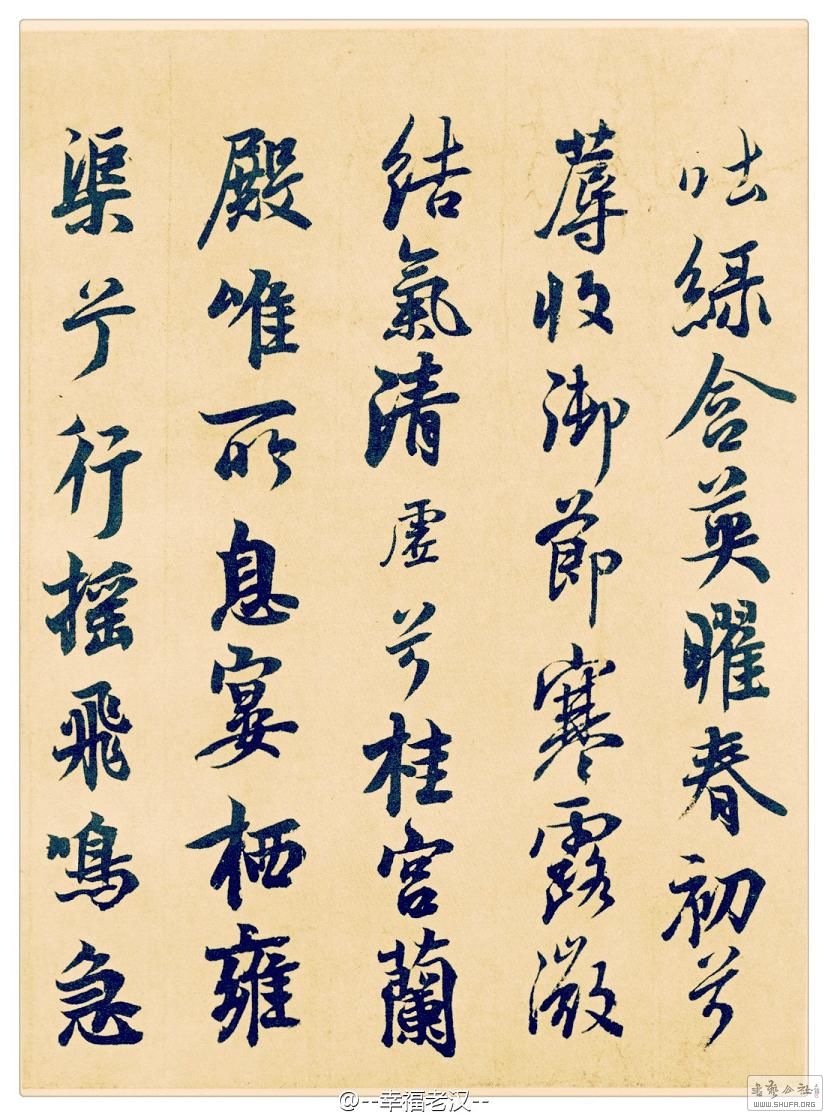 吐緑含英曜春初兮
蓐收御節寒露微
結氣清虛兮桂宮蘭
殿唯所息宴栖雍
渠兮行搖飛鳴急
@--幸福老汉--
書藝公社
WWW.SHUFA.ORG